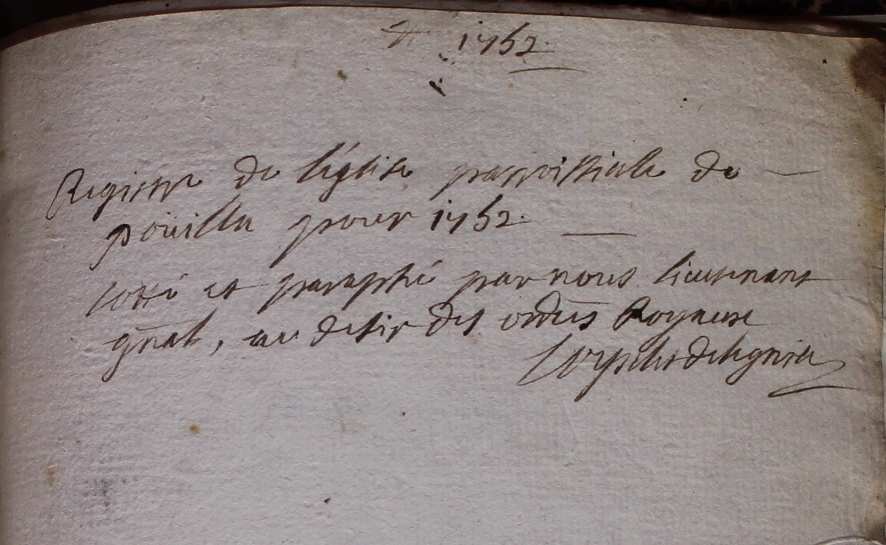 1752.
Registre de l'église parroissiale de
poüilla pour 1752.
cotté et paraphé par nous lieutenant
gñal, au desir des ordces Royaux